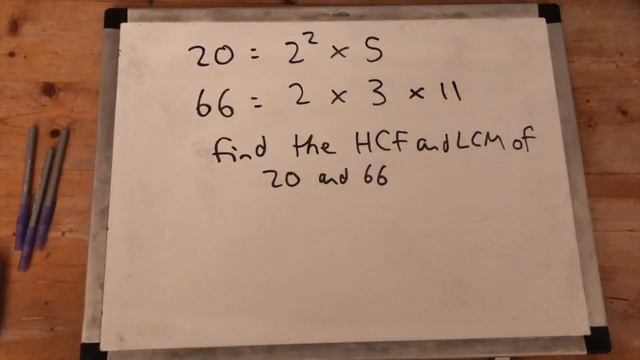 20 = 2² × 5
66 = 2 × 3 × 11
find the HCF and LCM of
20 and 66